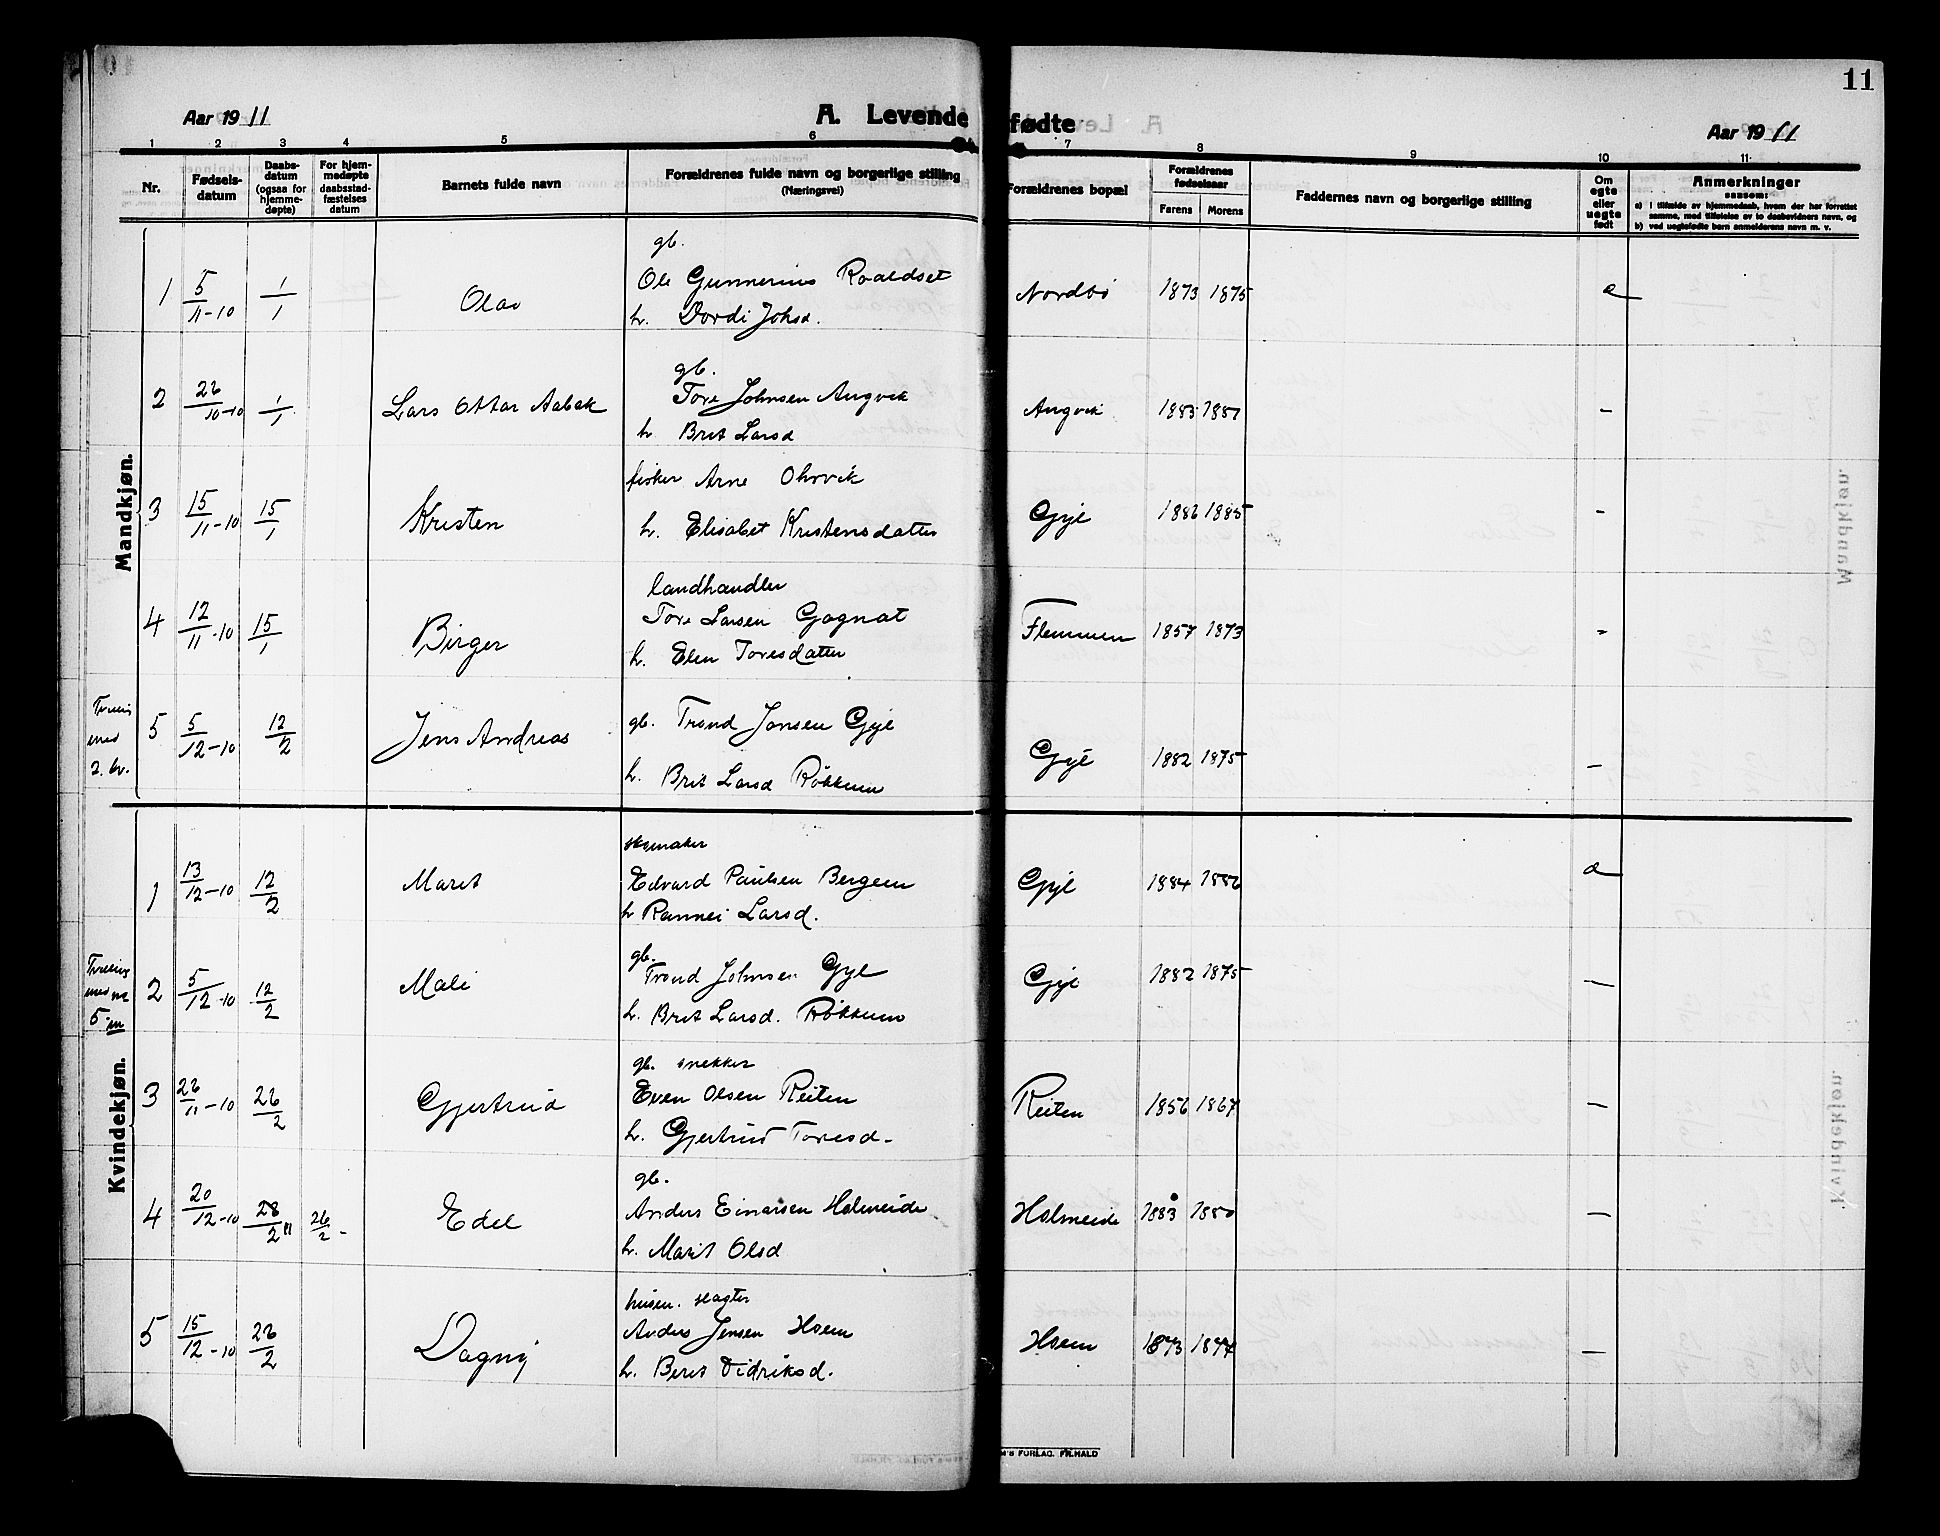 11
Aar 1911 A. Levende fødte Aar 1911
1 2 3 4 5 6 7 8 9 10 11
Nr. Fødsels-datum Daabs-datum (ogsaa for hjemme-døpte) For hjem-medøpte daabsstad-fæstelses datum Barnets fulde navn Forældrenes fulde navn og borgerlige stilling (Næringsvei) Forældrenes bopæl Forældrenes fødselsaar Farens Morens Faddernes navn og borgerlige stilling Om egte eller uegte født Anmerkninger
saasom:
a) i tilfælde av hjemmedaab, hvem der har forrettet
samme, med tilføielse av to daabsvidners navn, og
b) ved uegtefødte barn anmelderens navn m. v.
Mandkjøn.
gb.
1 5/11-10 1/1 Olav Ole Gunnerius Roaldset Nordbø 1873 1875 e
h. Dordi Johsd.
gb.
2 26/10-10 1/1 Lars Ottar Aabak Tore Johnsen Angvik Angvik 1883 1887 –
h Brit Larsd
fisker Arne Ohrvik
3 15/11-10 15/1 Kristen Gyl 1886 1885 -
h. Elisabet Kristensdatter
landhandler
4 12/11-10 15/1 Birger Tore Larsen Gagnat Flemmen 1857 1873 -
h. Elen Toresdatter
Tvilling
med
2. kv.
5 5/12-10 12/2 Jens Andreas gb. Trond Jonsen Gyl Gyl 1882 1875 –
h. Brit Larsd Røkkum
Kvindekjøn.
skomaker
1 13/12-10 12/2 Marit Edvard Paulsen Bergem Gyl 1884 1886 e
h Rannei Larsd.
Tvilling
med nr
5. m
gb.
2 5/12-10 12/2 Mali Trond Johnsen Gyl Gyl 1882 1875 –
h. Brit Larsd. Røkkum
gb. snekker
3 26/11-10 26/2 Gjertrud Even Olsen Reiten Reiten 1856 1867 –
h. Gjertrud Toresd.
gb.
4 20/12-10 28/2 11 26/2 - Edel Anders Einarsen Holmeide Holmeide 1883 1880 –
h. Marit Olsd
husm. slagter
5 15/12-10 26/2 Dagny Anders Jensen Hoem Hoem 1873 1877 –
h. Beret Didriksd.
M'S FORLAG. FR. HALD